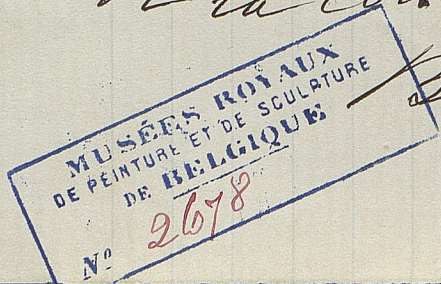 MUSÉES ROYAUX
DE PEINTURE ET DE SCULPTURE
DE BELGIQUE
Nº 2678